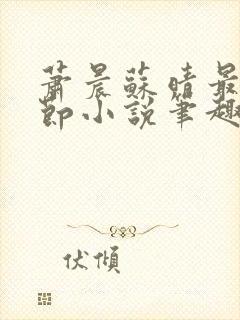 萧晨苏晴最
节小说笔趣
伏倾